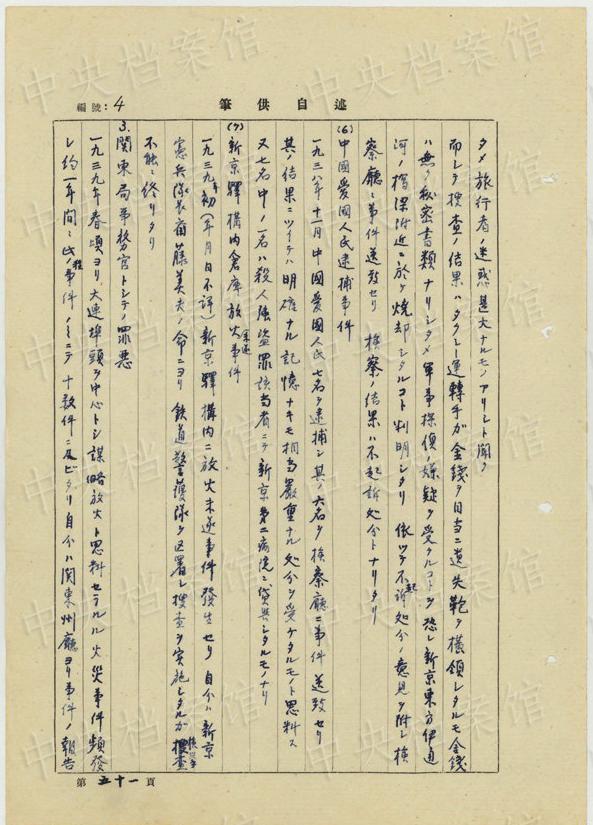 編號:4
述自供筆
タメ旅行者ノ迷惑甚大ナルモノアリシト聞ク
而シテ捜査ノ結果ハタクシー運轉手ガ金銭ヲ目当ニ遺失鞄ヲ横領シタルモ金銭
ハ無ク秘密書類ナリシタメ軍事探偵ノ嫌疑ヲ受クルコトヲ恐レ新京東方伊通
河ノ橋梁附近ニ於テ焼却シタルコト判明シタリ 依ッテ不起訴処分ノ意見ヲ附シ検
察廳ニ事件送致セリ 検察ノ結果ハ不起訴処分トナリタリ
(6)中國愛國人民逮捕事件
一九三八年十一月中國愛國人民七名ヲ逮捕シ其ノ六名ヲ検察廳ニ事件送致セリ
其ノ結果ニツイテハ明確ナル記憶ナキモ相当嚴重ナル処分ヲ受ケタルモノト思料ス
又七名中ノ一名ハ殺人強盗罪該当者ニテ新京第二病院ニ貸與シタルモノナリ
(7)新京驛構内倉庫放火未遂事件
一九三九年初(年月日不詳)新京驛構内ニ放火未遂事件發生セリ 自分ハ新京
憲兵隊長齋藤美夫ノ命ニヨリ 鉄道警護隊ヲ区署シ捜査ヲ実施シタルガ捜査
不能ニ終リタリ
3.関東局事務官トシテノ罪悪
一九三九年春頃ヨリ大連埠頭ヲ中心トシ謀略放火ト思料セラルル火災事件頻發
シ約一年間ニ此種事件ノミニテ十数件ニ及ビタリ 自分ハ関東州廳ヨリ事件ノ報告
第五十一頁
中央档案馆